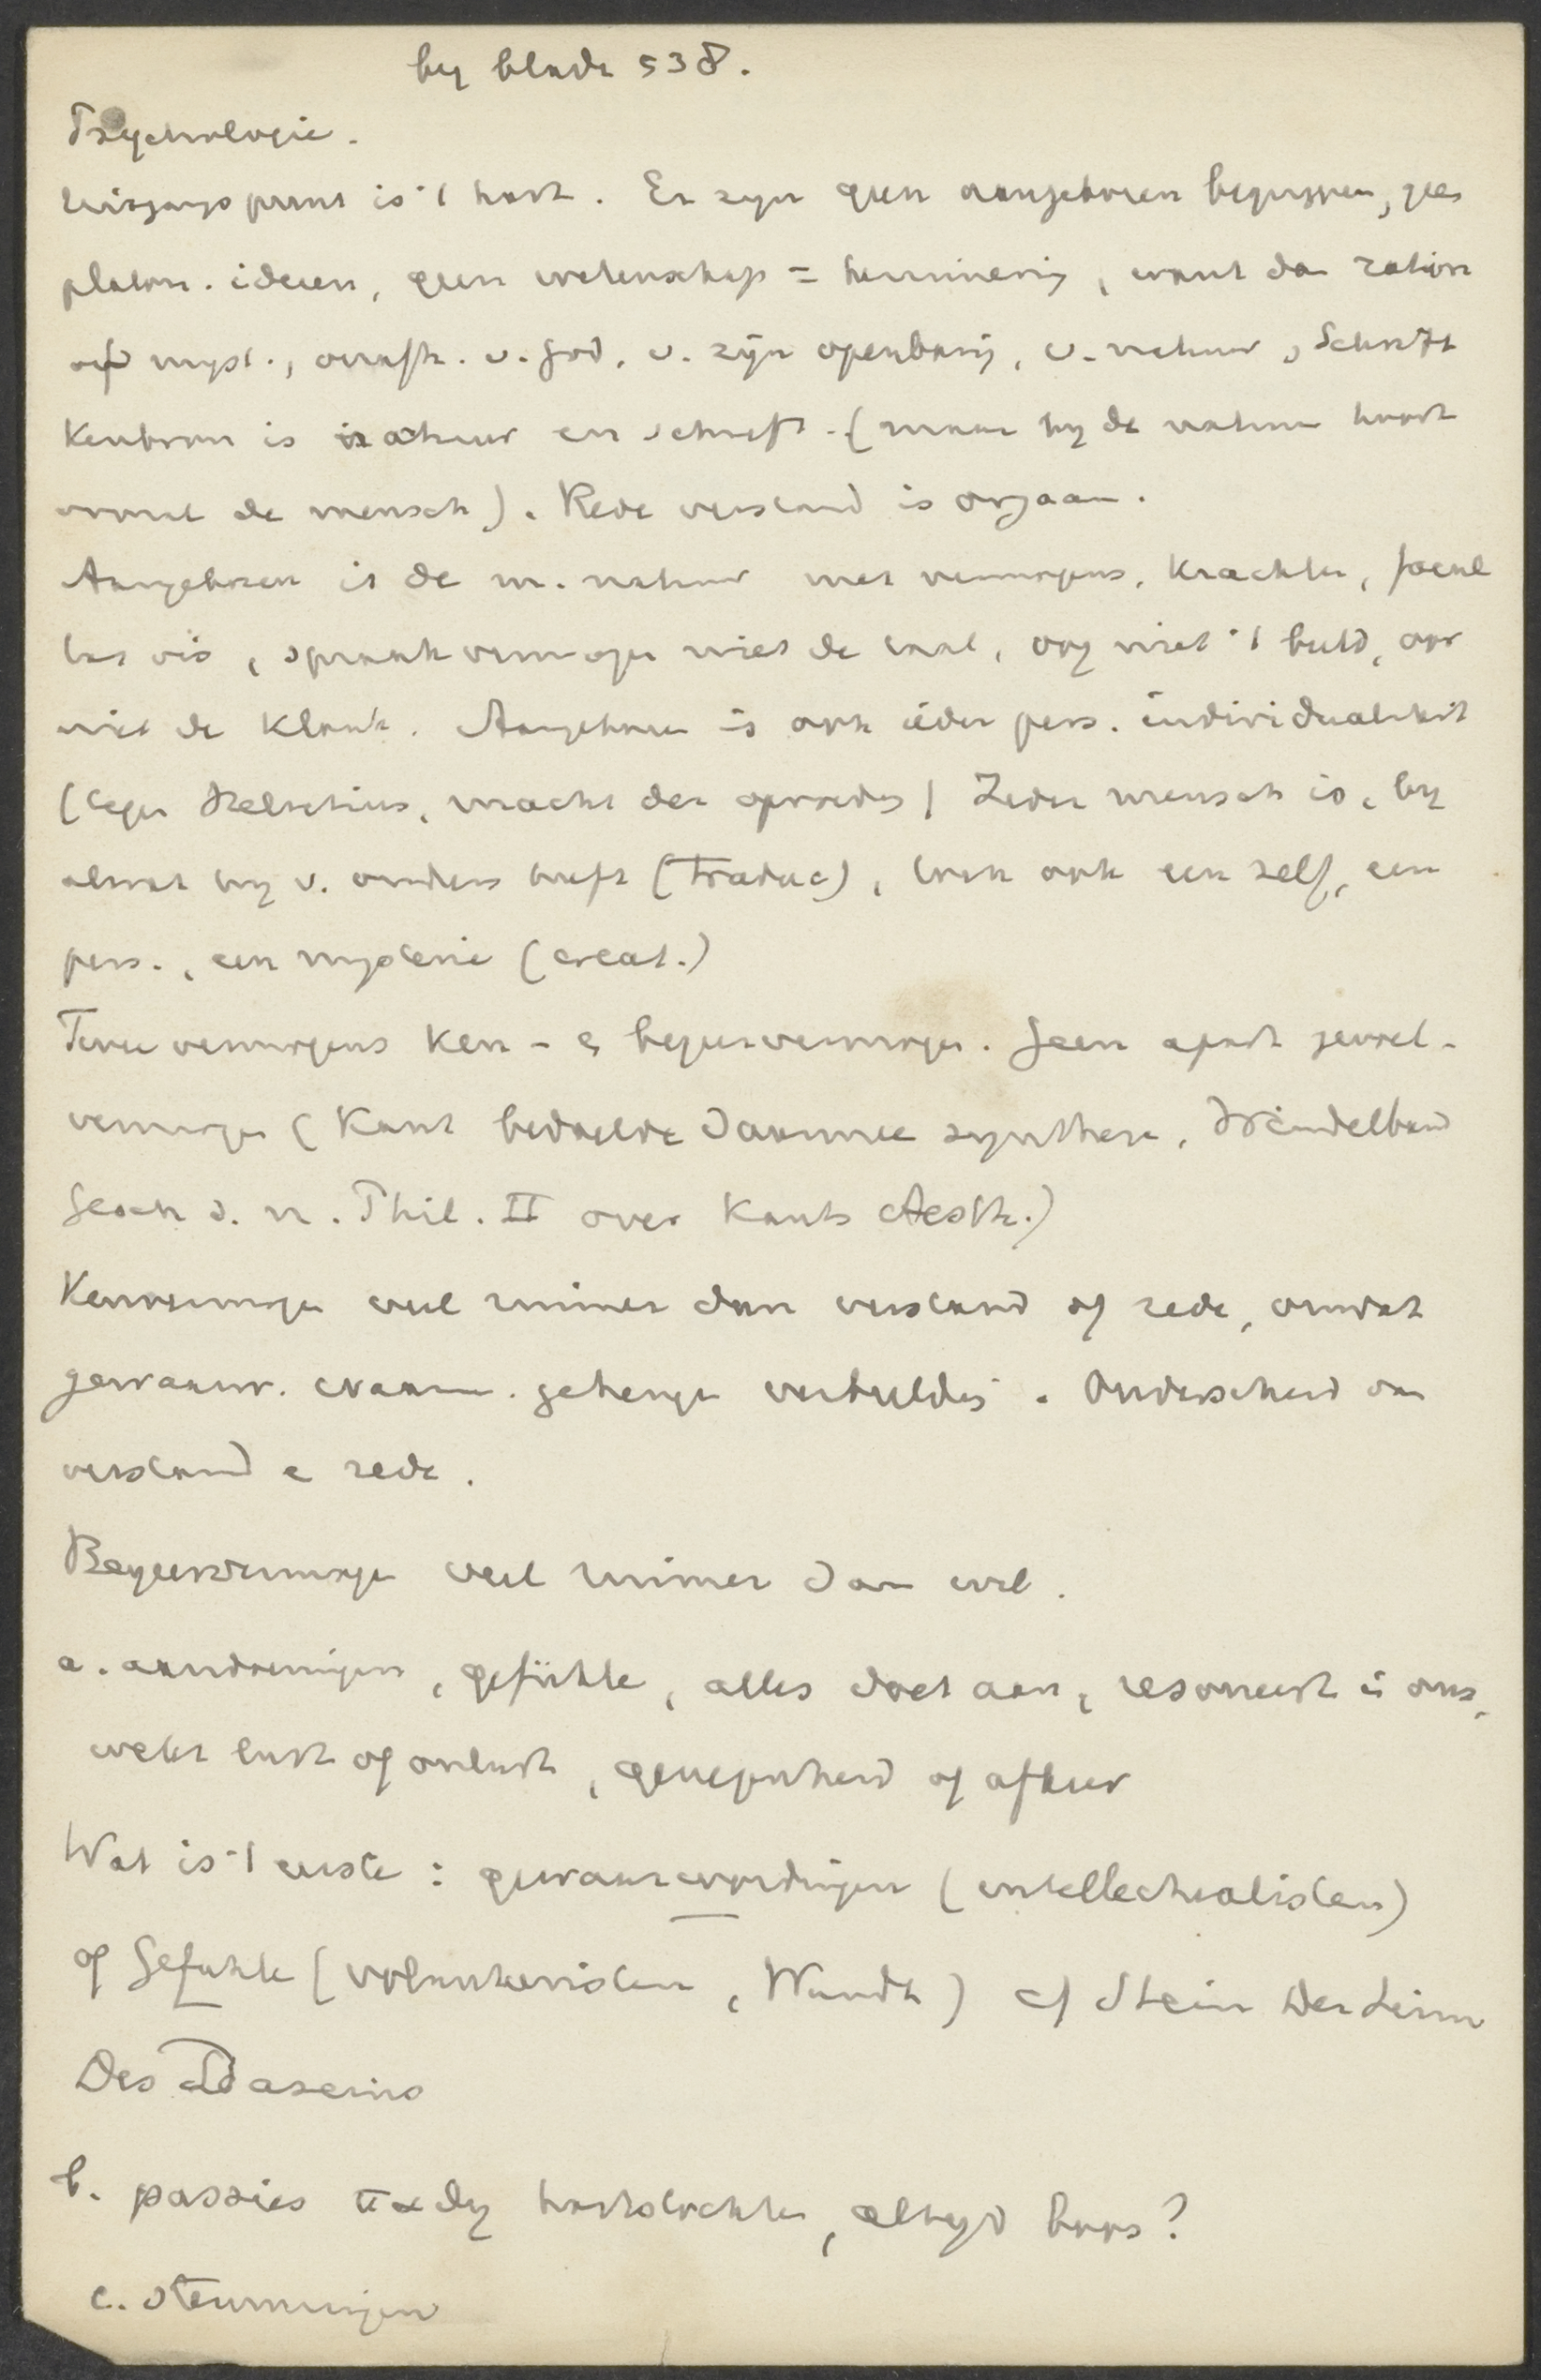 by bladz 538.
Psychologie.
Uitgangspunt is 't hart. Er zyn geen aangeboren begrippen, geen
platon. ideeen, geen wetenschap = herinnering, want dan ration
of myst., onafh. v. God, v. zyn openbaring, v. natuur, Schrift
Kenbron is natuur en schrift. (maar by de natuur hoort
vooral de mensch). Rede verstand is orgaan.
Aangeboren is de m. natuur met vermogens, krachten, facul
tas vis, spraakvermogen niet de taal, oog niet 't beeld, oor
niet de klank. Aangeboren is ook ieder pers. individualiteit
(tegen Helvetius, macht der opvoeding) Ieder mensch is, by
alwat hy v. ouders heeft (traduc), toch ook een zelf, een
pers., een mysterie (creat.)
Twee vermogens ken- en begeervermogen. Geen apart gevoel-
vermogen (Kant bedoelde daarmee synthese, Windelband
Gesch. d. n. Phil. II over Kants Aesth.)
Kenvermogen veel ruimer dan verstand of rede, omdat
gewaarw. waarn. geheugen verbeelding. Onderscheid van
verstand e rede.
Begeervermogen veel ruimer dan wil.
a. aandoeningen, gefühle, alles doet aan, resoneert in ons,
wekt lust of onlust, genegenheid of afkeer
Wat is 't eerste: gewaarwordingen (intellectualisten)
of Gefuhle (voluntaristen, Wundt) cf Stein Der Sinn
Des Daseins
b. passies παθη hartstochten, altyd boos?
c. Stemmingen